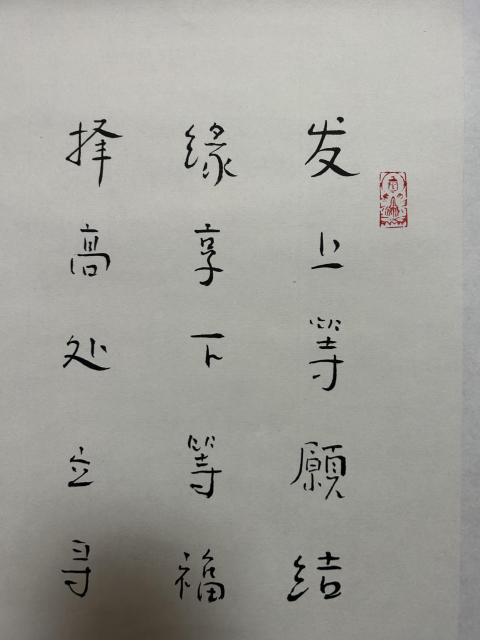 发上等願结
缘享下等福
择高处立寻